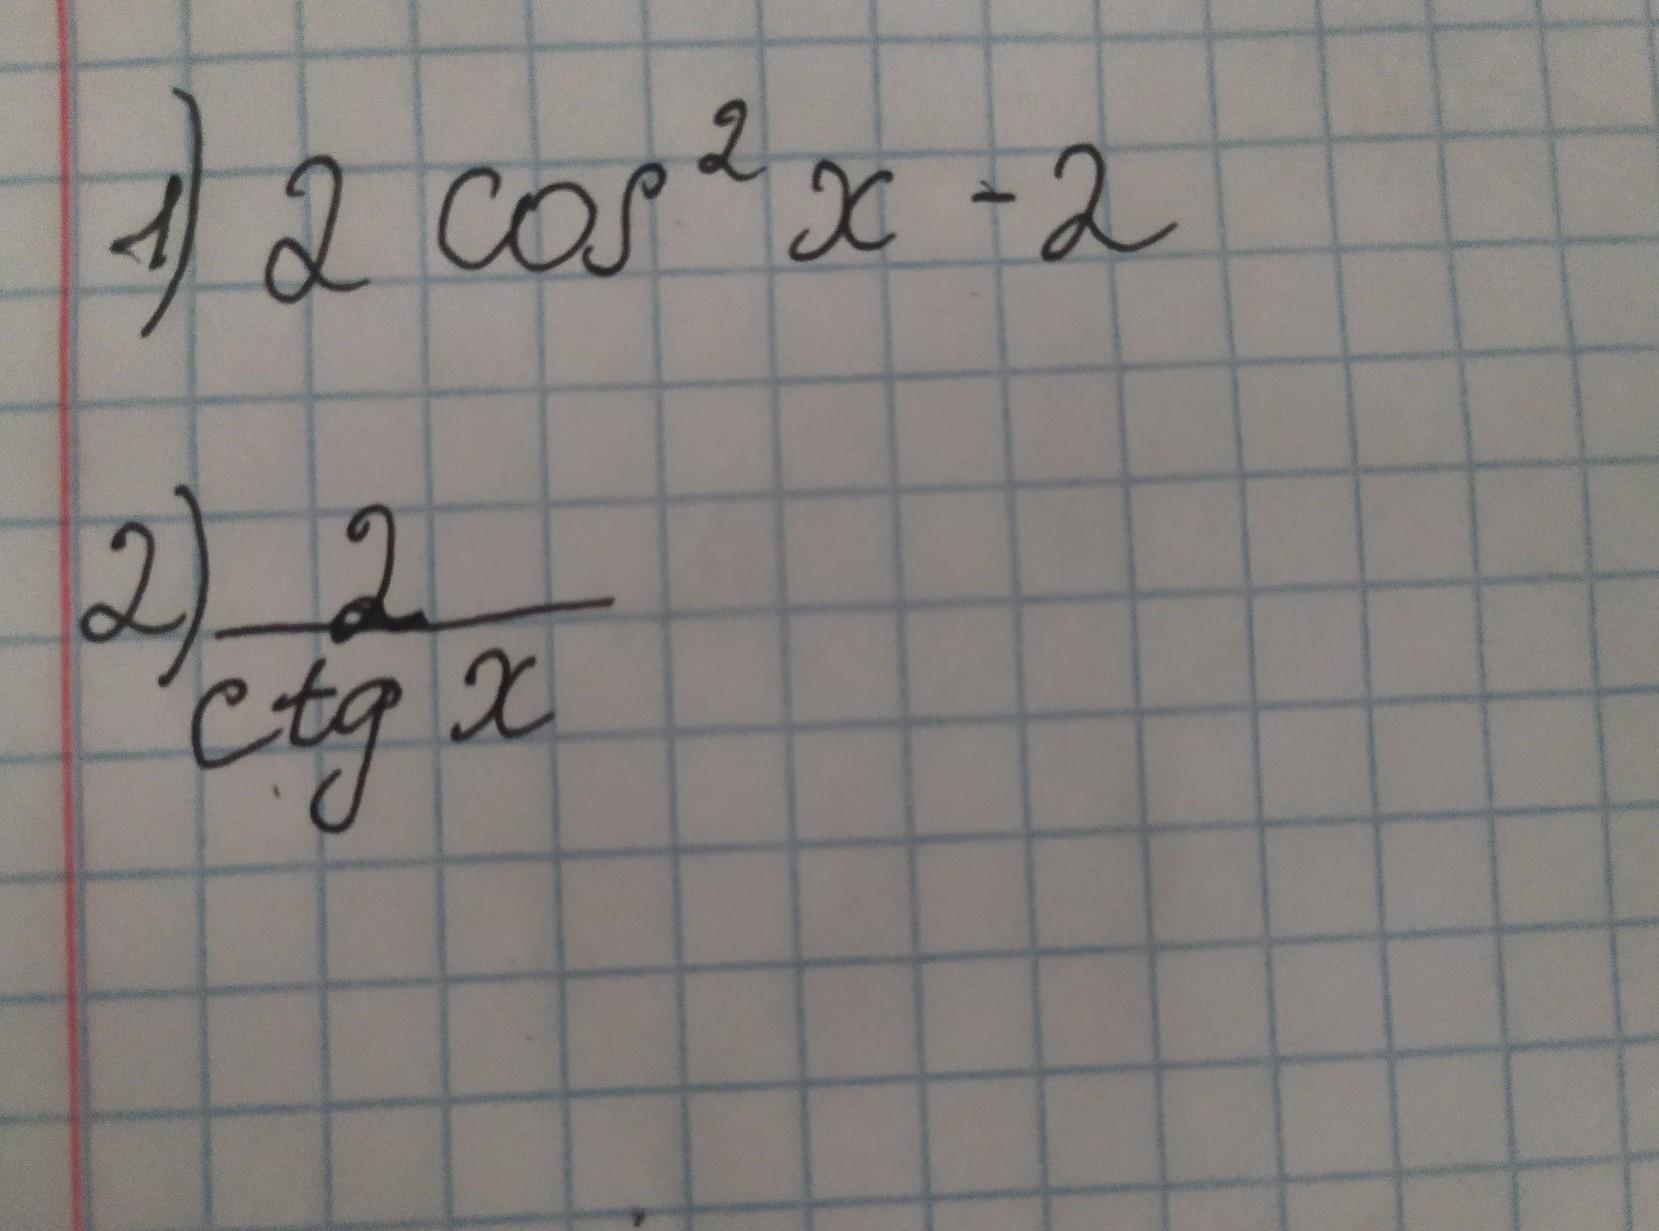 1) 2 cos² x - 2
2) 2
ctg x